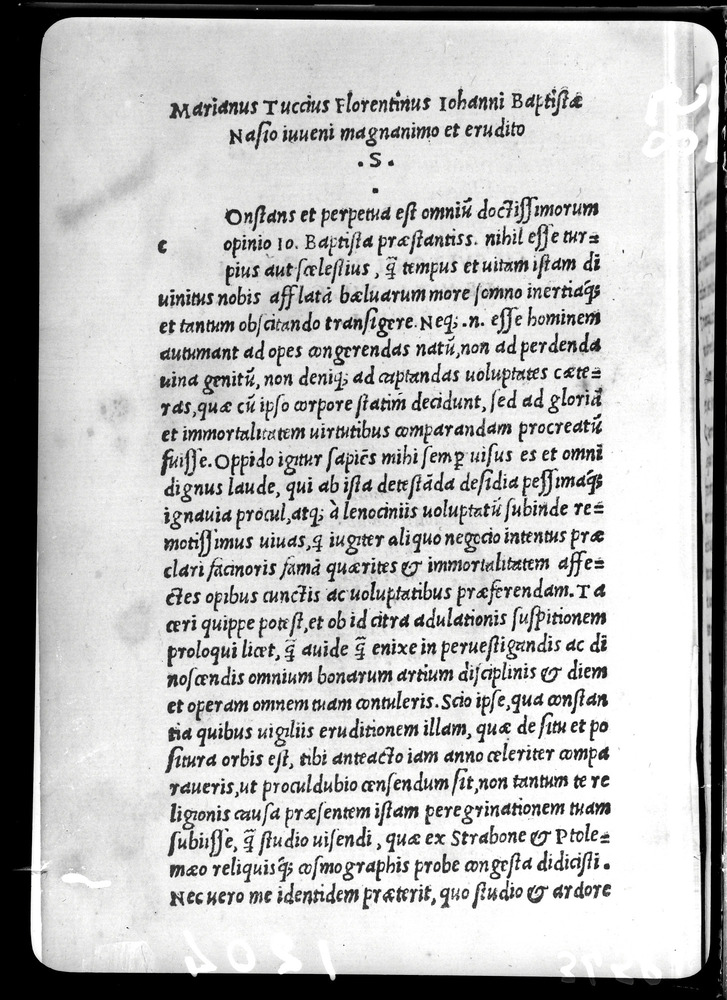 Marianus Tuccius Florentinus Iohanni Baptistæ
Nasio iuueni magnanimo et erudito
.S.
Onstans et perpetua est omniū doctissimorum
c opinio Io. Baptista præstantiss. nihil esse tur=
pius aut scelestius, q̄ tempus et uitam istam di
uinitus nobis afflatā bæluarum more somno inertiaq;
et tantum obscitando transigere. Neq; .n. esse hominem
autumant ad opes congerendas natū, non ad perdenda
uina genitū, non deniq; ad captandas uoluptates cæte=
ras, quæ cū ipso corpore statim decidunt, sed ad gloriā
et immortalitatem uirtutibus comparandam procreatū
fuisse. Oppido igitur sapiēs mihi semꝑ uisus es et omni
dignus laude, qui ab ista detestāda desidia pessimaq;
ignauia procul, atq; à lenociniis uoluptatū subinde re=
motissimus uiuas, q̄ iugiter aliquo negocio intentus præ
clari facinoris famā quærites & immortalitatem affe=
ctes opibus cunctis ac uoluptatibus præferendam. Ta
ceri quippe potest, et ob id citra adulationis suspitionem
proloqui licet, q̄ auide q̄ enixe in peruestigandis ac di
noscendis omnium bonarum artium disciplinis & diem
et operam omnem tuam contuleris. Scio ipse, qua constan
tia quibus uigiliis eruditionem illam, quæ de situ et po
situra orbis est, tibi anteacto iam anno celeriter compa
raueris, ut proculdubio censendum sit, non tantum te re
ligionis causa præsentem istam peregrinationem tuam
subiisse, q̄ studio uisendi, quæ ex Strabone & Ptole=
mæo reliquisq; cosmographis probe congesta didicisti.
Nec uero me identidem præterit, quo studio & ardore
1204